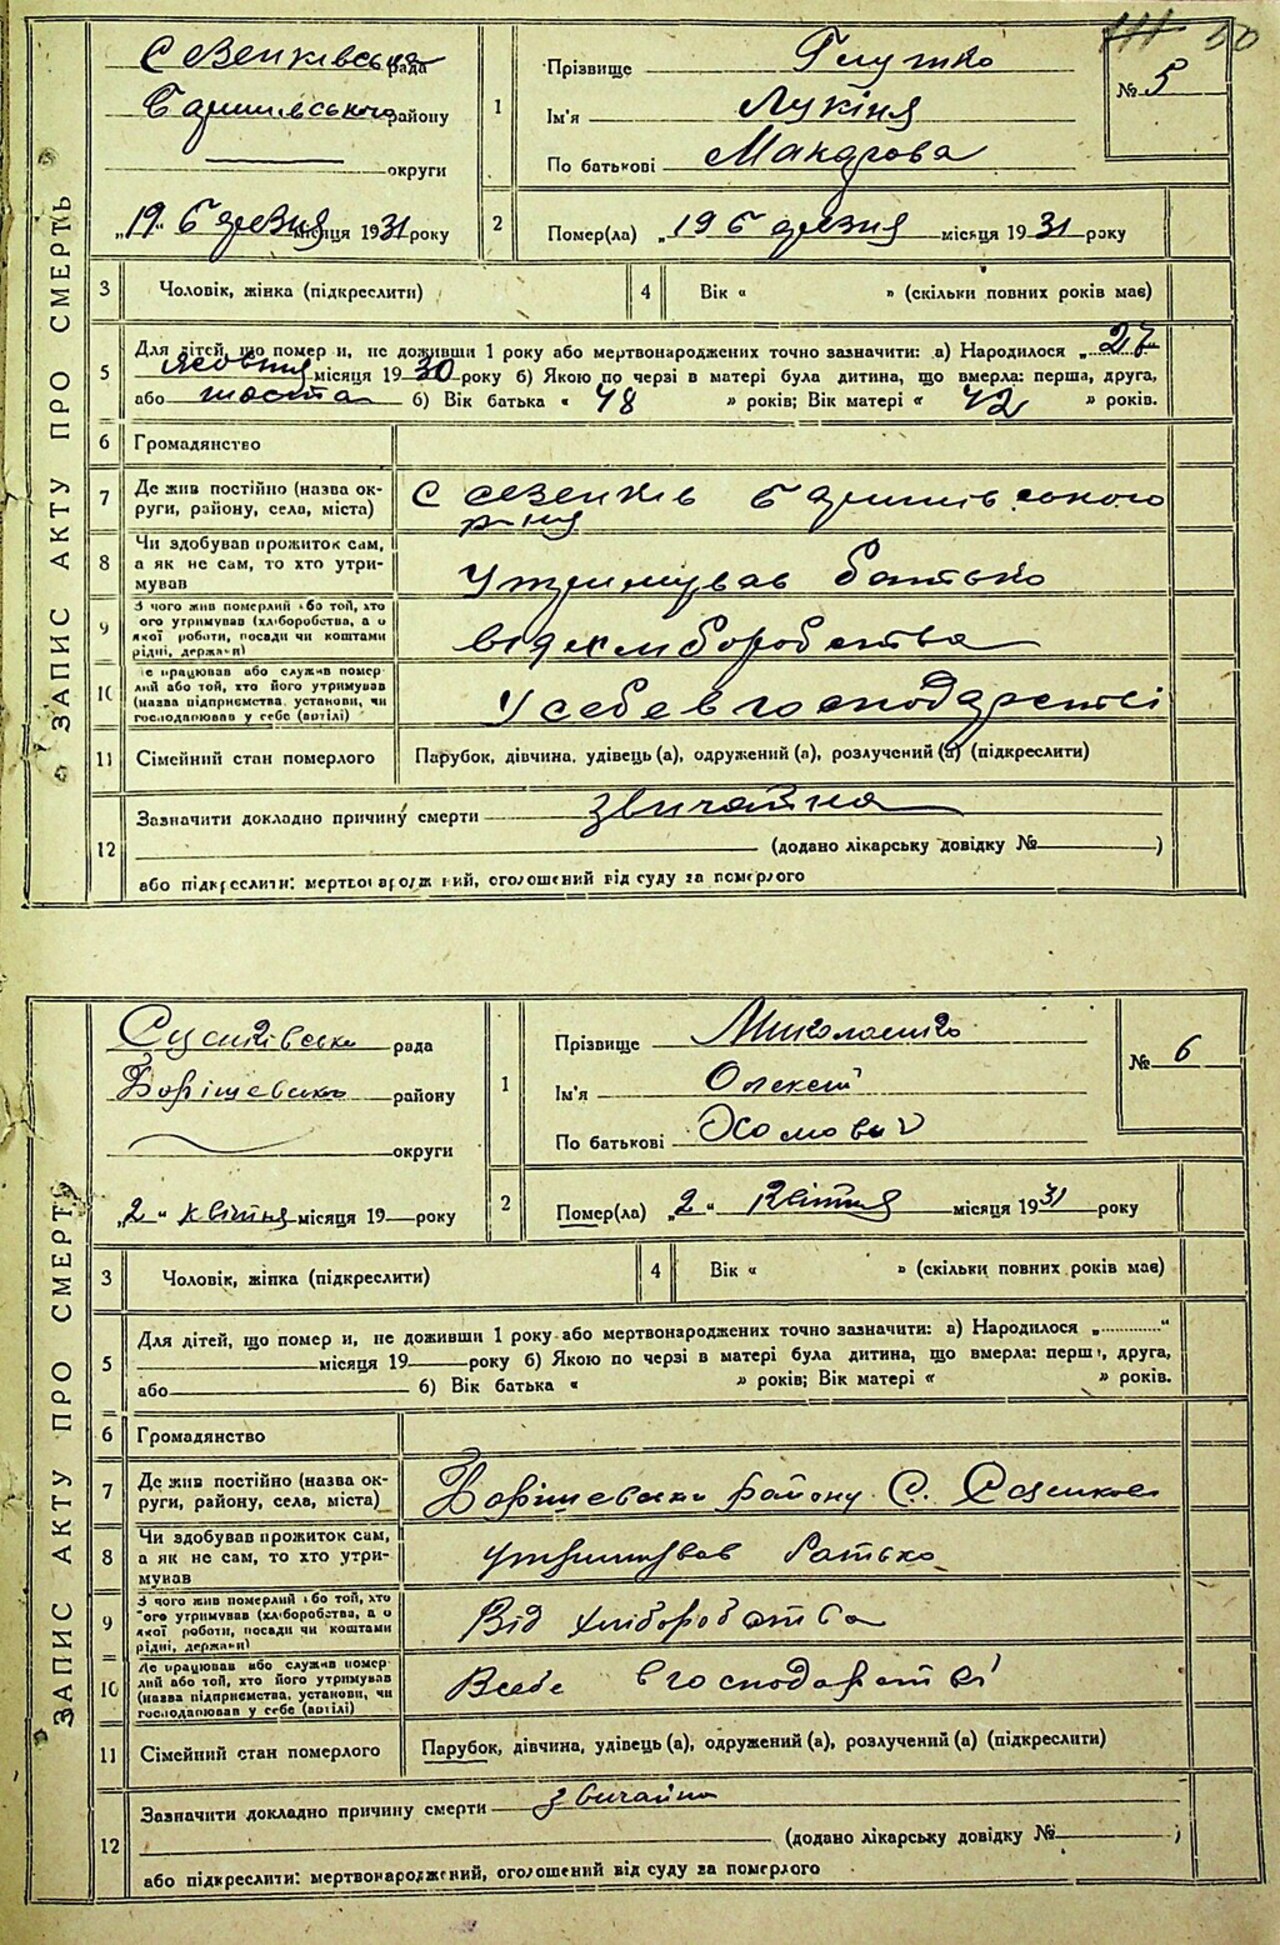 50
ЗАПИС АКТУ ПРО СМЕРТЬ
Сезенківська рада
Баришівського району
округи
1
Прізвище Глушко
Ім'я Лукіня
По батькові Макарова
№ 5
„19“ березня місяця 1931 року
2
Помер(ла) „19 березня місяця 1931 року
3 Чоловік, жінка (підкреслити)
4 Вік « » (скільки повних років має)
5 Для дітей, що померли, не доживши 1 року або мертвонароджених точно зазначити: а) Народилося „27“
жовтня місяця 1930 року б) Якою по черзі в матері була дитина, що вмерла: перша, друга,
або шоста б) Вік батька « 48 » років; Вік матері « 42 » років.
6 Громадянство
7 Де жив постійно (назва округи, району, села, міста)
с Сезенків Баришівського
р-ну
8 Чи здобував прожиток сам,
а як не сам, то хто утримував
Утримував батько
9 З чого жив померлий або той, хто
його утримував (хліборобства, або
якої роботи, посади чи коштами
рідні, держави)
від хліборобства
10 Де працював або служив помер-
лий або той, хто його утримував
(назва підприємства, установи, чи
господарював у себе (артілі)
У себе в господарстві
11 Сімейний стан померлого
Парубок, дівчина, удівець (а), одружений (а), розлучений (а) (підкреслити)
12 Зазначити докладно причину смерти звичайна
(додано лікарську довідку № )
або підкреслити: мертвонароджений, оголошений від суду за померлого
ЗАПИС АКТУ ПРО СМЕРТЬ
рада
району
округи
1
Прізвище Миколаєнко
Ім'я Олексій
По батькові Хомович
№ 6
„2“ квітня місяця 19 року
2
Помер(ла) „2“ квітня місяця 1931 року
3 Чоловік, жінка (підкреслити)
4 Вік « » (скільки повних років має)
5 Для дітей, що померли, не доживши 1 року або мертвонароджених точно зазначити: а) Народилося „ “
місяця 19 року б) Якою по черзі в матері була дитина, що вмерла: перша, друга,
або б) Вік батька « » років; Вік матері « » років.
6 Громадянство
7 Де жив постійно (назва округи, району, села, міста)
району С.
8 Чи здобував прожиток сам,
а як не сам, то хто утримував
утримував батько
9 З чого жив померлий або той, хто
його утримував (хліборобства, або
якої роботи, посади чи коштами
рідні, держави)
Від хліборобства
10 Де працював або служив помер-
лий або той, хто його утримував
(назва підприємства, установи, чи
господарював у себе (артілі)
Всебе в господарстві
11 Сімейний стан померлого
Парубок, дівчина, удівець (а), одружений (а), розлучений (а) (підкреслити)
12 Зазначити докладно причину смерти звичайна
(додано лікарську довідку № )
або підкреслити: мертвонароджений, оголошений від суду за померлого